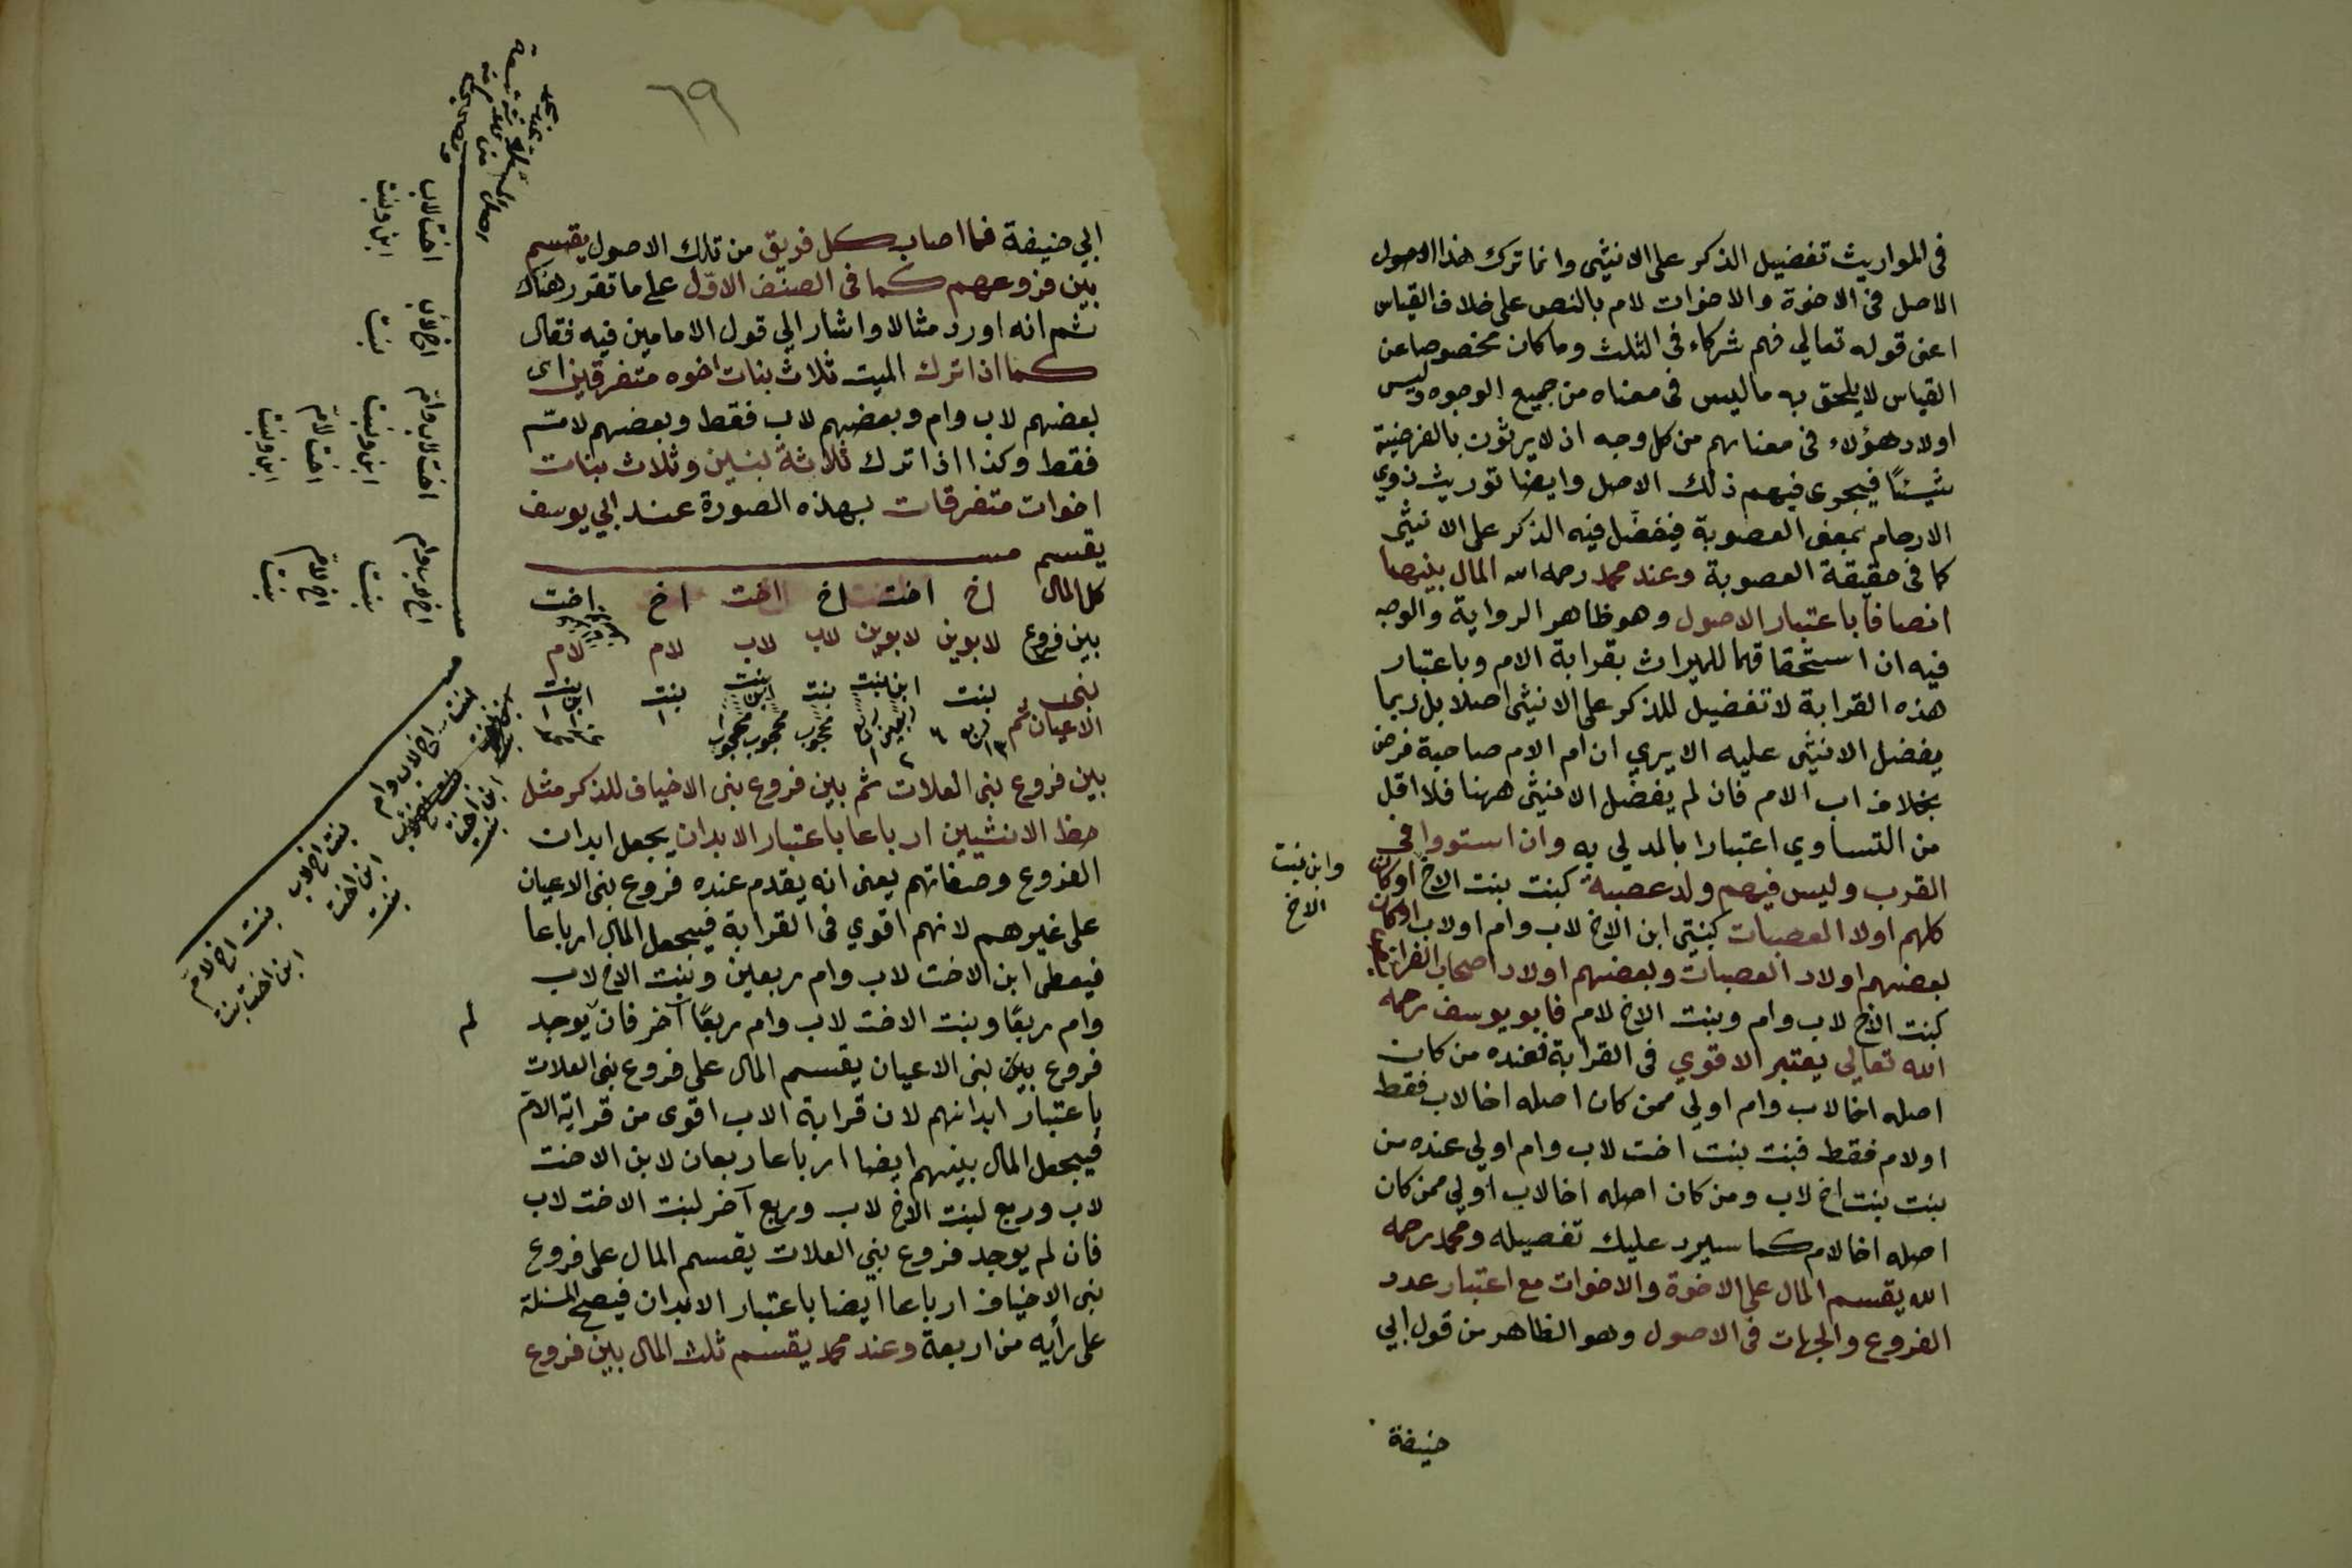 في المواريث تفضيل الذكر على الانثي وانما ترك هذا الاصول
الاصل في الاخوة والاخوات لام بالنص على خلاف القياس
اعني قوله تعالي فهم شركاء في الثلث وما كان مخصوصا عن
القياس لا يلحق به ما ليس في معناه من جميع الوجوه وليس
اولاد هؤلاء في معناهم من كل وجه اذ لا يرثون بالفرضية
شيئًا فيجري فيهم ذلك الاصل وايضا توريث ذوي
الارحام بمعنى العصوبة فيفضل فيه الذكر على الانثي
كما في حقيقة العصوبة وعند محمد رحمه الله المال بينهما
انصافا باعتبار الاصول وهو ظاهر الرواية والوجه
فيه ان استحقاقهما للميراث بقرابة الام وباعتبار
هذه القرابة لا تفضيل للذكر على الانثى اصلا بل ربما
يفضل الانثى عليه الا يري ان ام الام صاحبة فرض
بخلاف اب الام فان لم يفضل الانثى ههنا فلا اقل
من التساوي اعتبارا بالمدلي به وان استووا في
القرب وليس فيهم ولد عصبة كبنت بنت الاخ او كان
وابن بنت
الاخ
كلهم اولاد العصبات كبنتي ابن الاخ لاب وام او لاب او كان
بعضهم اولاد العصبات وبعضهم اولاد اصحاب الفرائض
كبنت الاخ لاب وام وبنت الاخ لام فابو يوسف رحمه
الله تعالي يعتبر الاقوي في القرابة فعنده من كان
اصله اخا لاب وام اولي ممن كان اصله اخا لاب فقط
او لام فقط فبنت بنت اخت لاب وام اولي عنده من
بنت بنت اخ لاب ومن كان اصله اخا لاب اولي ممن كان
اصله اخا لام كما سيرد عليك تفصيله ومحمد رحمه
الله يقسم المال على الاخوة والاخوات مع اعتبار عدد
الفروع والجهات في الاصول وهو الظاهر من قول ابي
حنيفة
٦٩
ابي حنيفة فما اصاب كل فريق من تلك الاصول يقسم
بين فروعهم كما في الصنف الاوّل على ما تقرر هناك
ثم انه اورد مثالا واشار الي قول الامامين فيه فقال
كما اذا ترك الميت ثلاث بنات اخوه متفرقين اى
بعضهم لاب وام وبعضهم لاب فقط وبعضهم لامّ
فقط وكذا اذا ترك ثلاثة بنين وثلاث بنات
اخوات متفرقات بهذه الصورة عند ابي يوسف
يقسم
كل المال اخ اخت اخ اخت اخ اخت
بين فروع لابوين لابوين لاب لاب لام لام
بني بنت ابن بنت بنت ابن بنت بنت ابن بنت
الاعيان ثم
بين فروع بني العلات ثم بين فروع بني الاخياف للذكر مثل
حظ الانثيين ارباعا باعتبار الابدان يجعل ابدان
الفروع وصفاتهم يعنى انه يقدم عنده فروع بني الاعيان
على غيرهم لانهم اقوي في القرابة فيجعل المال ارباعا
فيعطى ابن الاخت لاب وام ربعين وبنت الاخ لاب
وام ربعًا وبنت الاخت لاب وام ربعًا آخر فان يوجد
لم
فروع بين بني الاعيان يقسم المال على فروع بني العلات
باعتبار ابدانهم لان قرابة الاب اقوى من قرابة الامّ
فيجعل المال بينهم ايضا ارباعا ربعان لابن الاخت
لاب وربع لبنت الاخ لاب وربع آخر لبنت الاخت لاب
فان لم يوجد فروع بني العلات يقسم المال على فروع
بني الاخياف ارباعا ايضا باعتبار الابدان فيصح المسئلة
على رأيه من اربعة وعند محمد يقسم ثلث المال بين فروع
اخ لاب وام
بنت
اخ لامّ
بنت
اخت لاب وامّ
ابن وبنت
اخت لامّ
ابن وبنت
اخ لاب
بنت
اخت لاب
ابن وبنت
بنت اخ لاب وام
بنت اخ لاب
ابن اخت
بنت
بنت اخ لامّ
ابن اخت